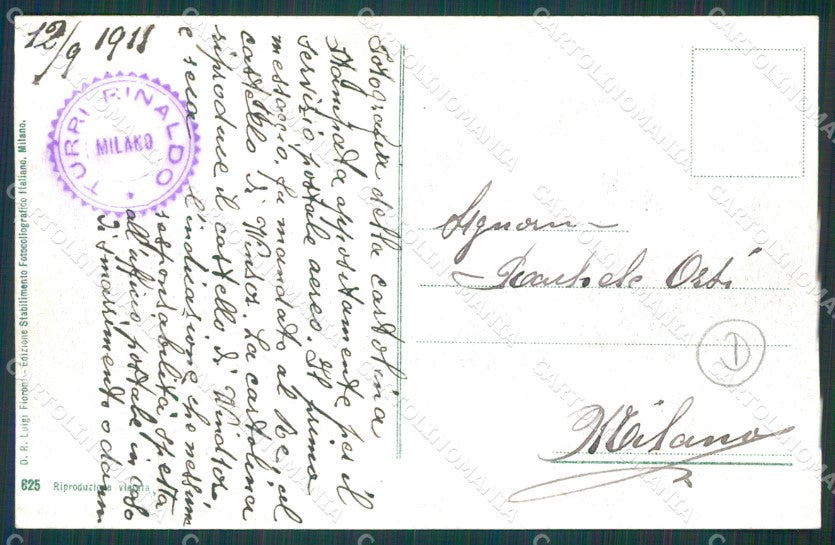 12/9 1911
TURRI RINALDO
MILANO
Fotografia della cartolina
stampata appositamente per il
servizio postale aereo. Il primo
messaggio fu mandato al Re, al
castello di Winsor. La cartolina
riproduce il castello di Windsor
e reca l'indicazione che nessuna
responsabilità spetta
all'ufficio postale in caso
di smarrimento o danni
D. R. Luigi Fioroni - Edizione Stabilimento Fotocollografico Italiano, Milano.
625 Riproduzione vietata
Signora
Orsi
D
Milano
CARTOLINOMANIA